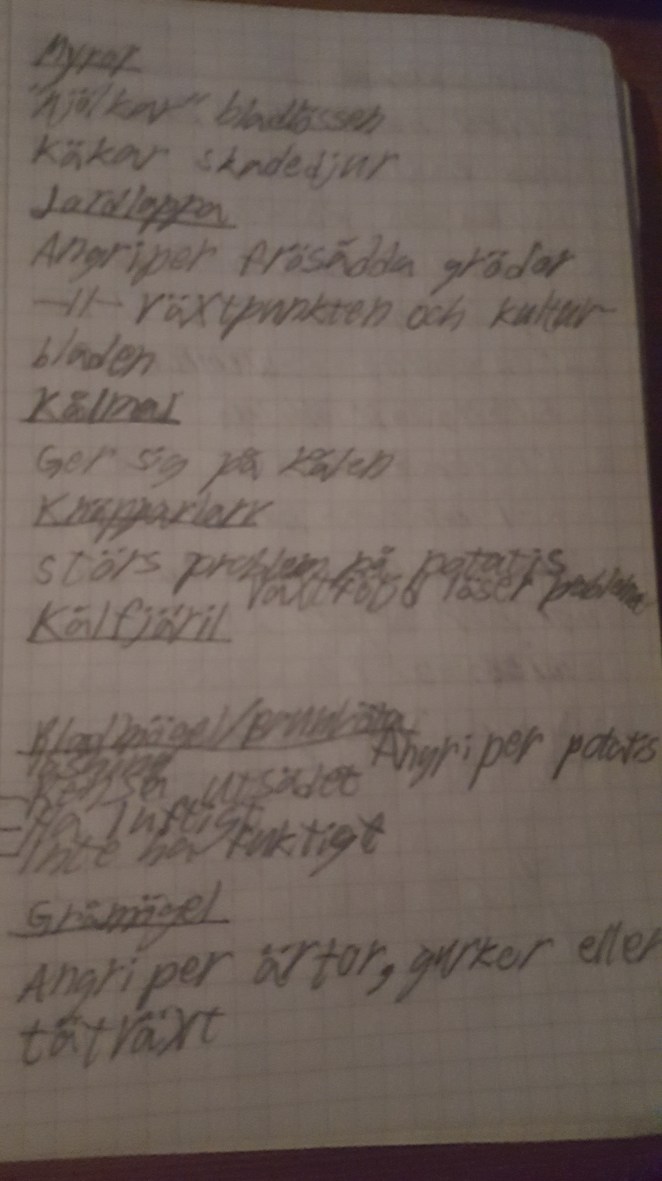 Myror
"Mjölkar" bladlössen
Käkar skadedjur
Jordloppa
Angriper frösådda grödor
—||— växtpunkten och kultur-
bladen
Kålmal
Ger sig på kålen
Knäpparlarv
störs problem på potatis
växtföljd löser problem
Kålfjäril
Bladmögel/brunröta
Angriper potatis
Rensa utsädet
Ha luftigt
Inte ha fuktigt
Gråmögel
Angriper ärtor, gurkor eller
tätväxt